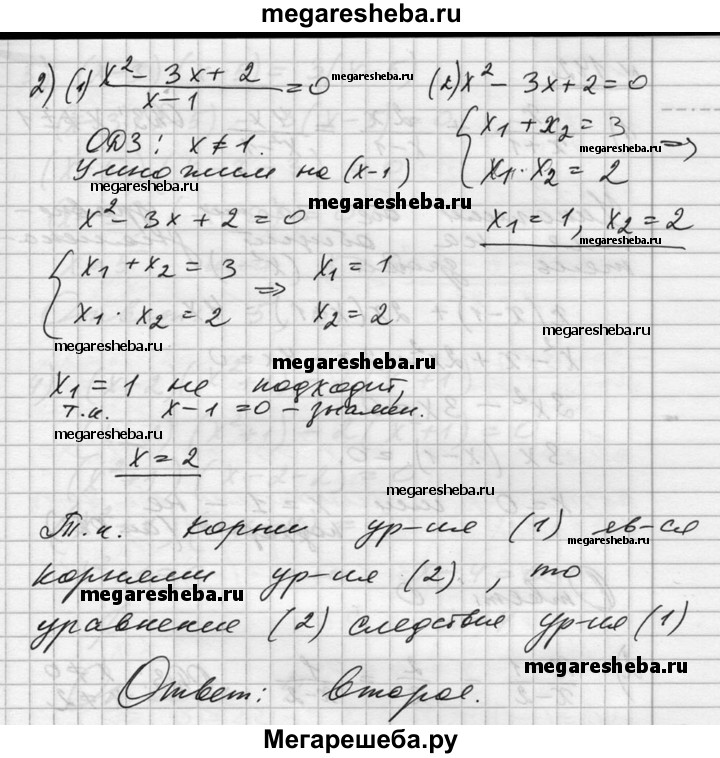 megaresheba.ru
2) (1) x² - 3x + 2 / x - 1 = 0 megaresheba.ru (2) x² - 3x + 2 = 0
ОДЗ: x ≠ 1. { x₁ + x₂ = 3
megaresheba.ru ⇒
Умножим на (x-1) x₁ · x₂ = 2
megaresheba.ru megaresheba.ru
x² - 3x + 2 = 0 x₁ = 1, x₂ = 2
megaresheba.ru
{ x₁ + x₂ = 3 ⇒ x₁ = 1
x₁ · x₂ = 2 x₂ = 2
megaresheba.ru megaresheba.ru
megaresheba.ru
x₁ = 1 не подходит,
т.к. x - 1 = 0 - знамен.
megaresheba.ru
x = 2
megaresheba.ru
Т.к. корни ур-ия (1) яв-ся
megaresheba.ru
корнями ур-ия (2), то
megaresheba.ru
уравнение (2) следствие ур-ия (1)
megaresheba.ru
Ответ: второе.
Мегарешеба.ру